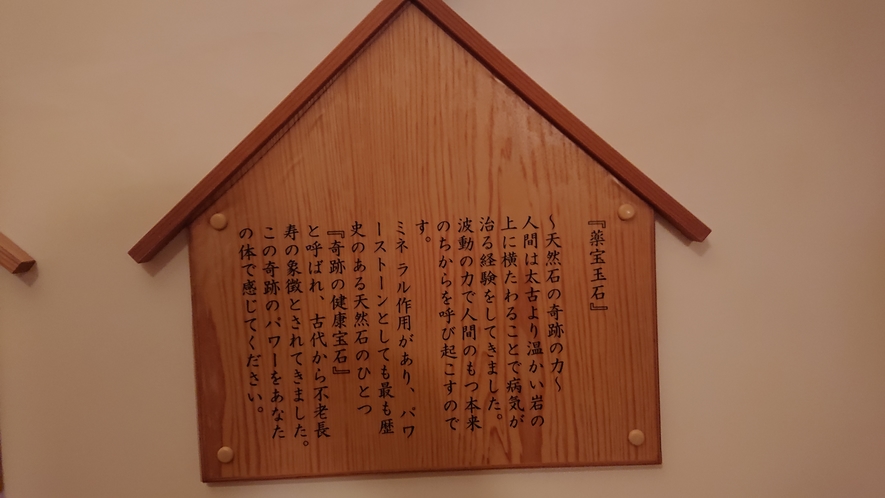 『薬宝玉石』
～天然石の奇跡の力～
人間は太古より温かい岩の
上に横たわることで病気が
治る経験をしてきました。
波動の力で人間のもつ本来
のちからを呼び起こすので
す。
ミネラル作用があり、パワ
ーストーンとしても最も歴
史のある天然石のひとつ
『奇跡の健康宝石』
と呼ばれ、古代から不老長
寿の象徴とされてきました。
この奇跡のパワーをあなた
の体で感じてください。